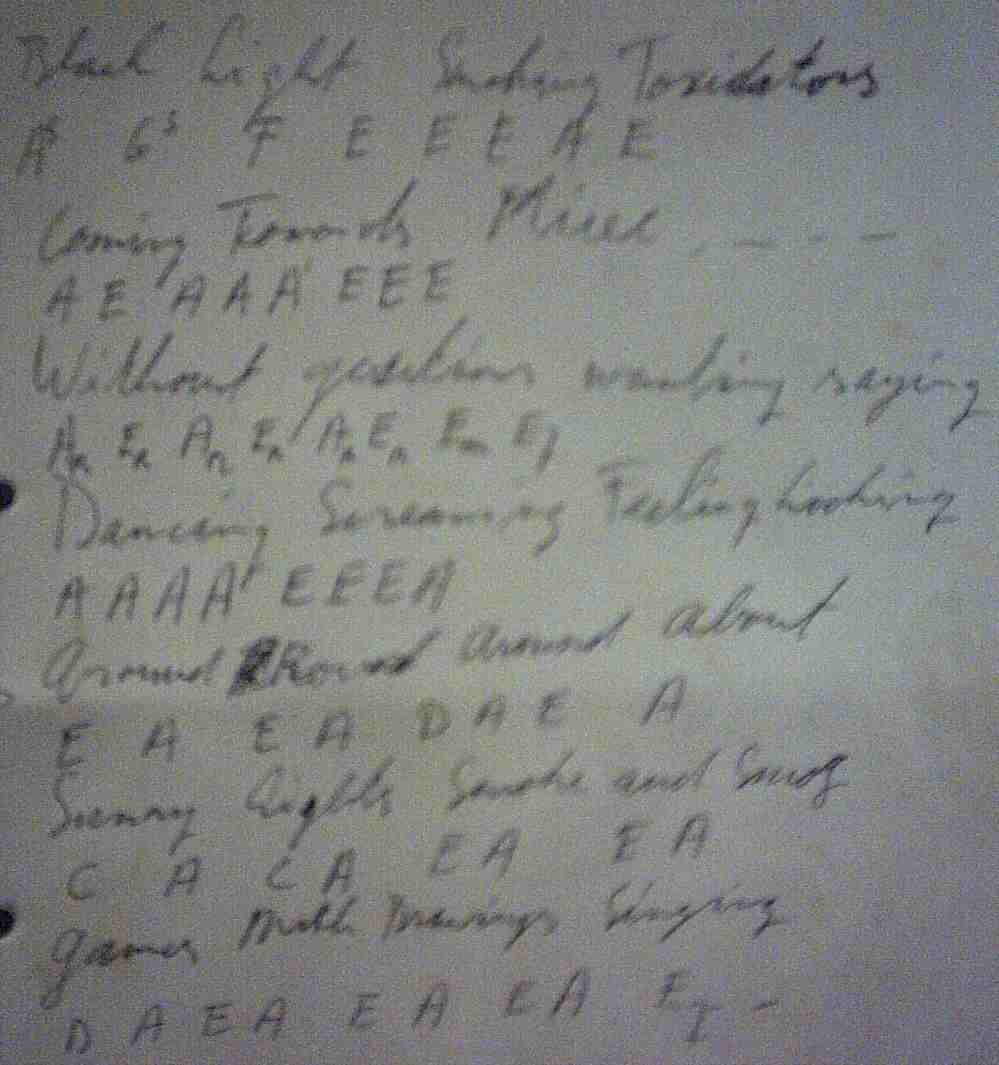 Black Light Smoking Toxidators
A G F E E E A E
Coming Towards
A E A A A E E E
Without wanting saying
Am Em Am Em Am Em Em E7
Dancing Screaming Feeling Looking
A A A A E E E A
around Round around about
E A E A D A E A
Sunny Lights Smoke and Smog
C A C A E A E A
games Drawings Singing
D A E A E A E A